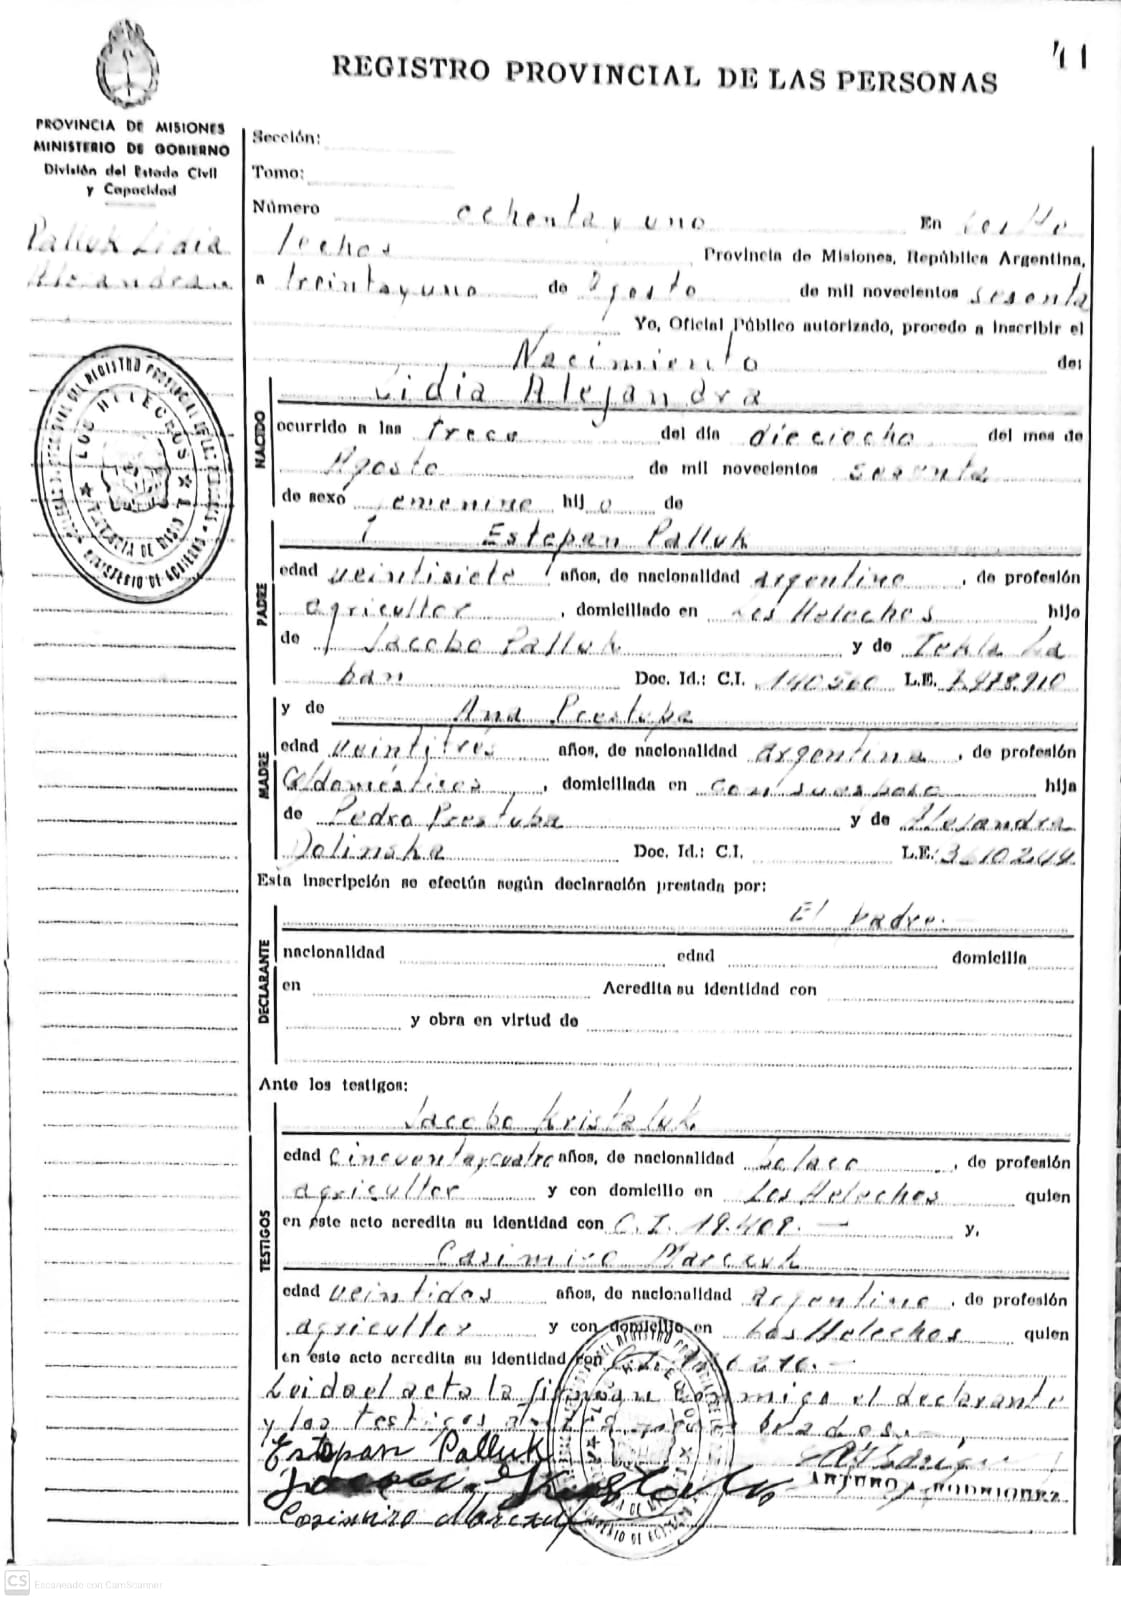 41
REGISTRO PROVINCIAL DE LAS PERSONAS
PROVINCIA DE MISIONES
MINISTERIO DE GOBIERNO
División del Estado Civil
y Capacidad
Palluk Lidia
Alejandra
Sección:
Tomo:
Número ochenta y uno En Los He
lechos Provincia de Misiones, República Argentina,
a treinta y uno de Agosto de mil novecientos sesenta
Yo, Oficial Público autorizado, procedo a inscribir el
Nacimiento de:
NACIDO
Lidia Alejandra
ocurrido a las trece del día dieciocho del mes de
Agosto de mil novecientos sesenta
de sexo femenino hijo de
PADRE
Estepan Palluk
edad veintisiete años, de nacionalidad argentino, de profesión
agricultor, domiciliado en Los Helechos hijo
de Jacobo Palluk y de Tekla La
ban Doc. Id.: C.I. 140560 L.E. 7.478.910
MADRE
y de Ana Prestupa
edad veintitres años, de nacionalidad argentina, de profesión
Q/domésticos, domiciliada en con su esposo hija
de Pedro Prestupa y de Alejandra
Dolinska Doc. Id.: C.I. L.E. 3610244.
Esta inscripción se efectúa según declaración prestada por:
DECLARANTE
El padre.-
nacionalidad edad domicilia
en Acredita su identidad con
y obra en virtud de
Ante los testigos:
TESTIGOS
Jacobo Kristaluk
edad cincuenta y cuatro años, de nacionalidad polaco, de profesión
agricultor y con domicilio en Los Helechos quien
en este acto acredita su identidad con C.I. 19.408.- y,
Casimiro Marczuk
edad veintidos años, de nacionalidad Argentino, de profesión
agricultor y con domicilio en Los Helechos quien
en éste acto acredita su identidad con
Leido el acta la firman conmigo el declarante
y los testigos
Estepan Palluk
Casimiro Marczuk
ARTURO RODRIGUEZ
LOS HELECHOS
CS Escaneado con CamScanner